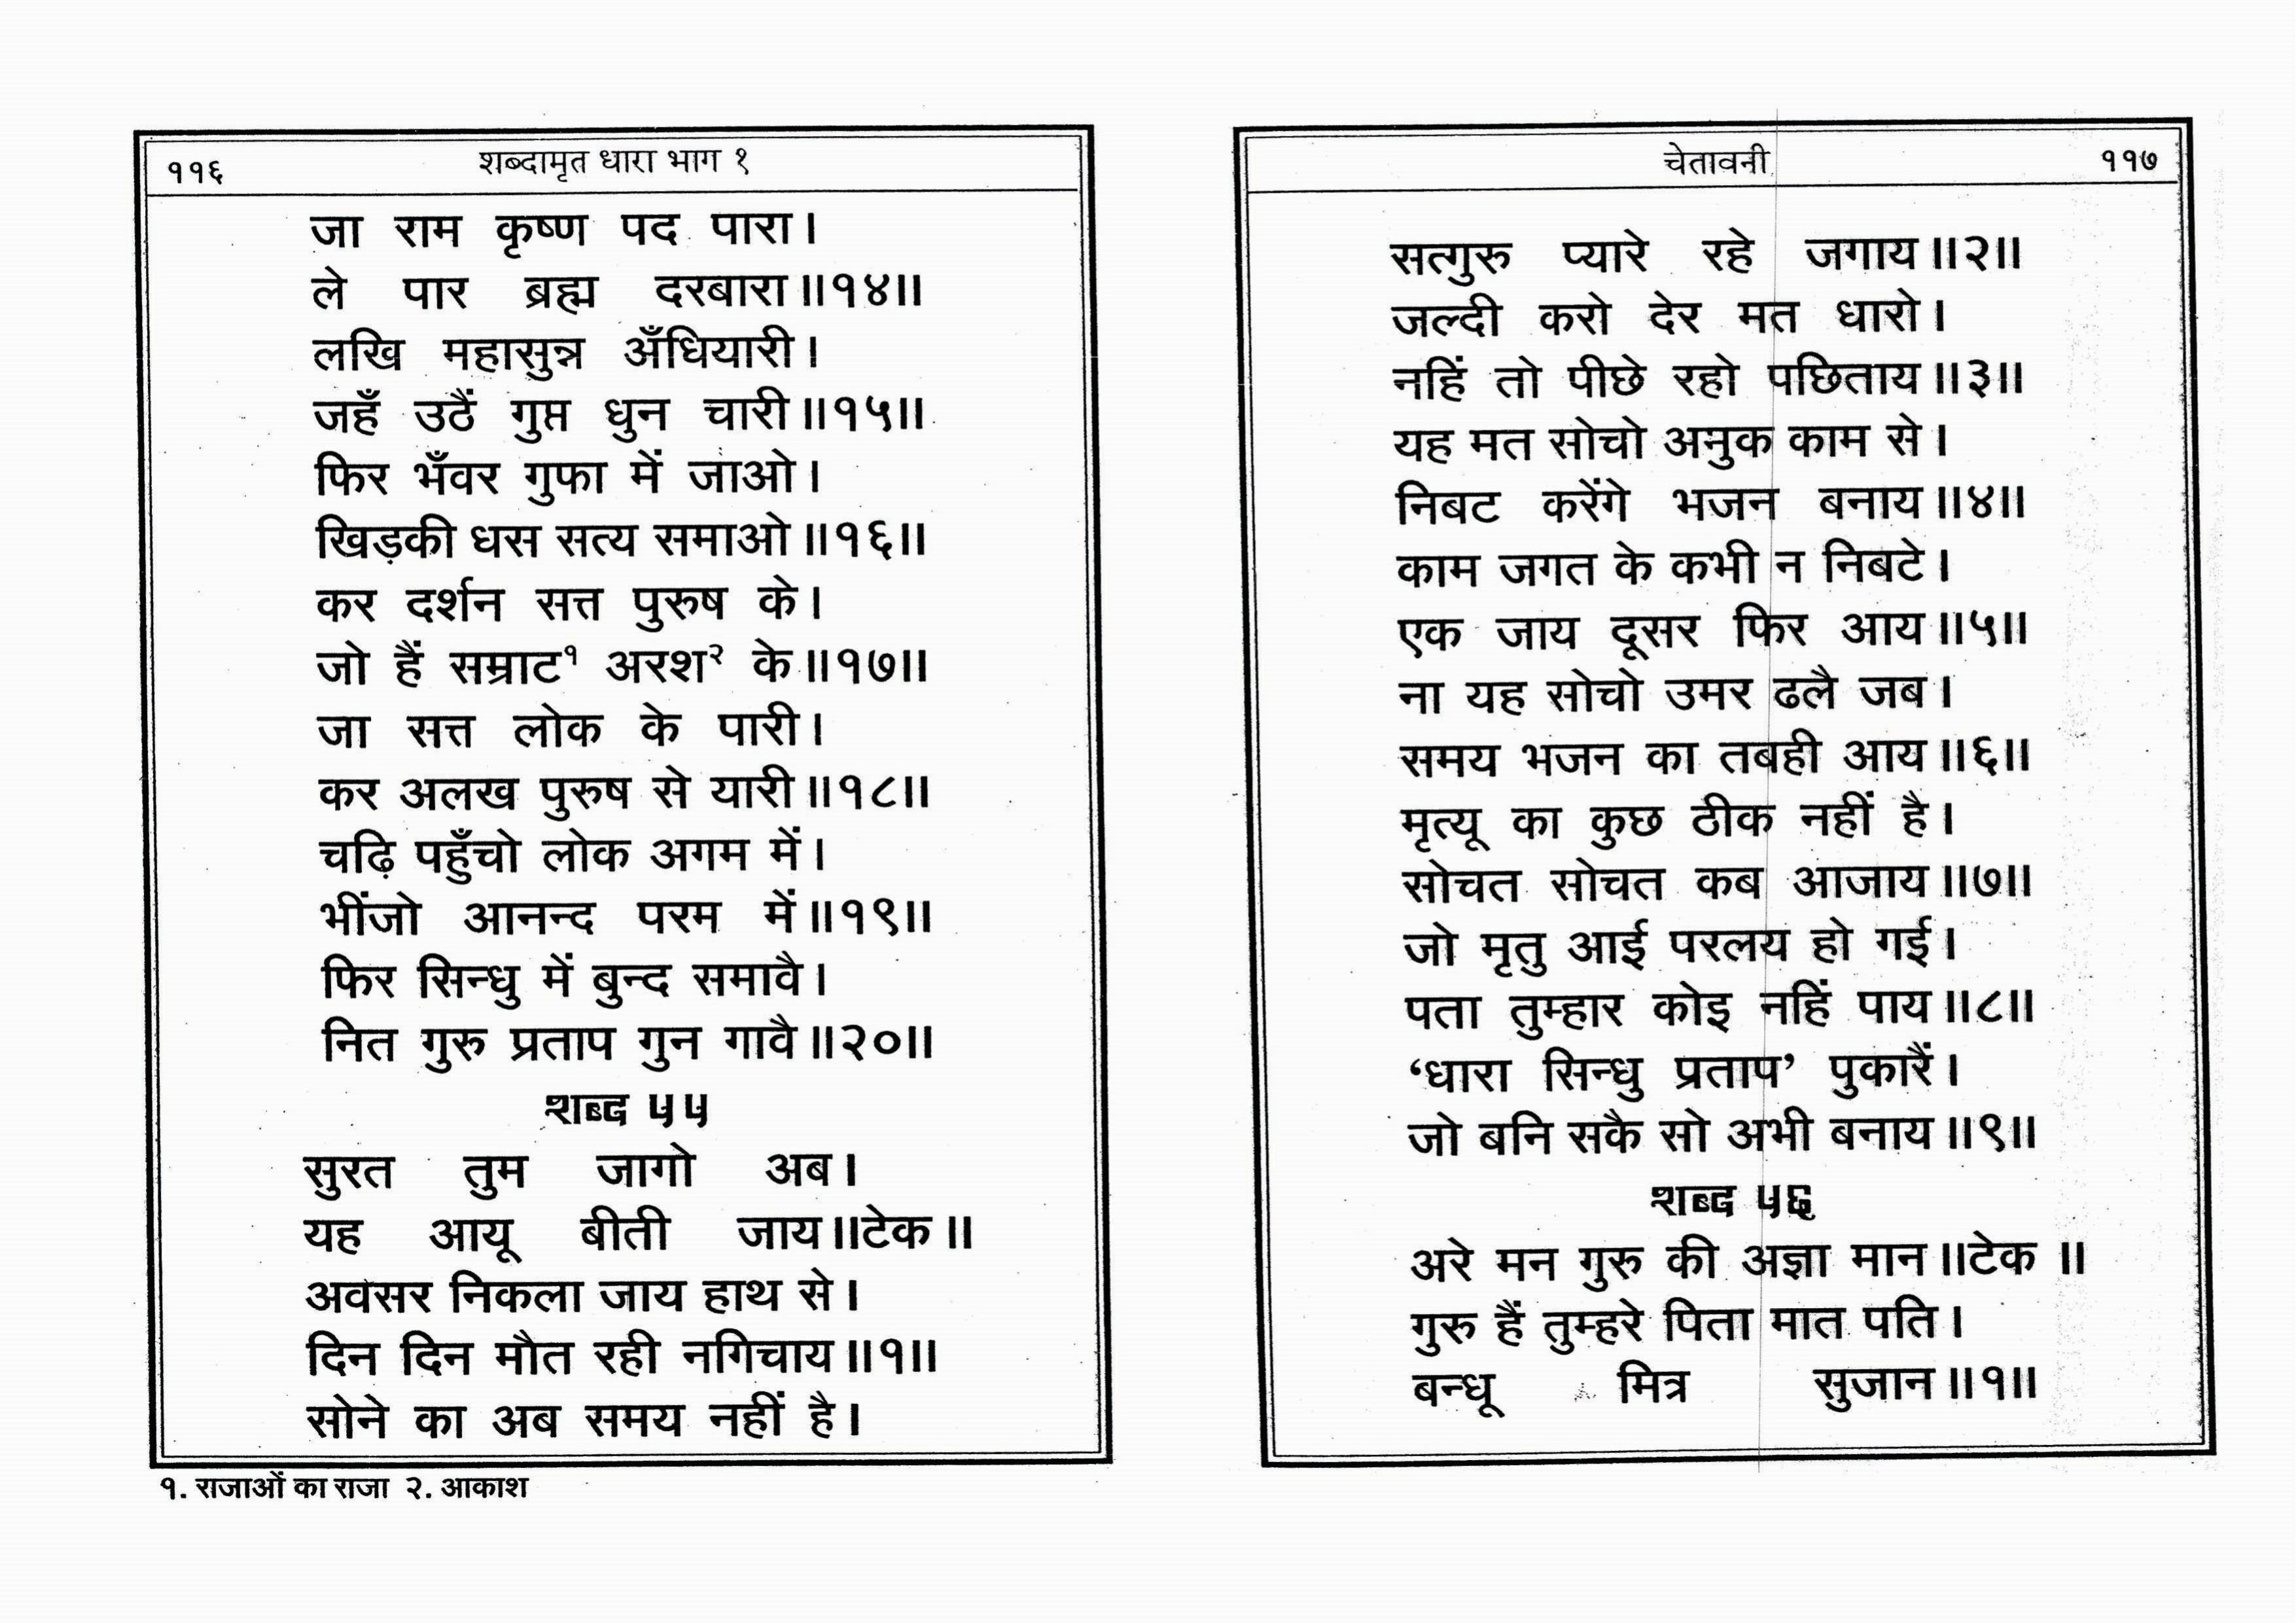 ११६
शब्दामृत धारा भाग १
जा राम कृष्ण पद पारा।
ले पार ब्रह्म दरबारा॥१४॥
लखि महासुन्न अँधियारी।
जहँ उठैं गुप्त धुन चारी॥१५॥
फिर भँवर गुफा में जाओ।
खिड़की धस सत्य समाओ॥१६॥
कर दर्शन सत्त पुरुष के।
जो हैं सम्राट१ अरश२ के॥१७॥
जा सत्त लोक के पारी।
कर अलख पुरुष से यारी॥१८॥
चढ़ि पहुँचो लोक अगम में।
भींजो आनन्द परम में॥१९॥
फिर सिन्धु में बुन्द समावै।
नित गुरु प्रताप गुन गावै॥२०॥
शब्द ५५
सुरत तुम जागो अब।
यह आयू बीती जाय॥टेक॥
अवसर निकला जाय हाथ से।
दिन दिन मौत रही नगिचाय॥१॥
सोने का अब समय नहीं है।
१. राजाओं का राजा २. आकाश
चेतावनी
११७
सत्गुरु प्यारे रहे जगाय॥२॥
जल्दी करो देर मत धारो।
नहिं तो पीछे रहो पछिताय॥३॥
यह मत सोचो अमुक काम से।
निबट करेंगे भजन बनाय॥४॥
काम जगत के कभी न निबटे।
एक जाय दूसर फिर आय॥५॥
ना यह सोचो उमर ढलै जब।
समय भजन का तबही आय॥६॥
मृत्यू का कुछ ठीक नहीं है।
सोचत सोचत कब आजाय॥७॥
जो मृतु आई परलय हो गई।
पता तुम्हार कोइ नहिं पाय॥८॥
‘धारा सिन्धु प्रताप’ पुकारैं।
जो बनि सकै सो अभी बनाय॥९॥
शब्द ५६
अरे मन गुरु की अज्ञा मान॥टेक॥
गुरु हैं तुम्हरे पिता मात पति।
बन्धू मित्र सुजान॥१॥